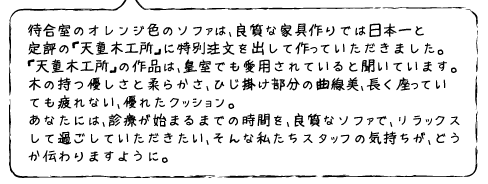 待合室のオレンジ色のソファは、良質な家具作りでは日本一と
定評の『天童木工所』に特別注文を出して作っていただきました。
『天童木工所』の作品は、皇室でも愛用されていると聞いています。
木の持つ優しさと柔らかさ、ひじ掛け部分の曲線美、長く座ってい
ても疲れない、優れたクッション。
あなたには、診療が始まるまでの時間を、良質なソファで、リラックス
して過ごしていただきたい、そんな私たちスタッフの気持ちが、どう
か伝わりますように。